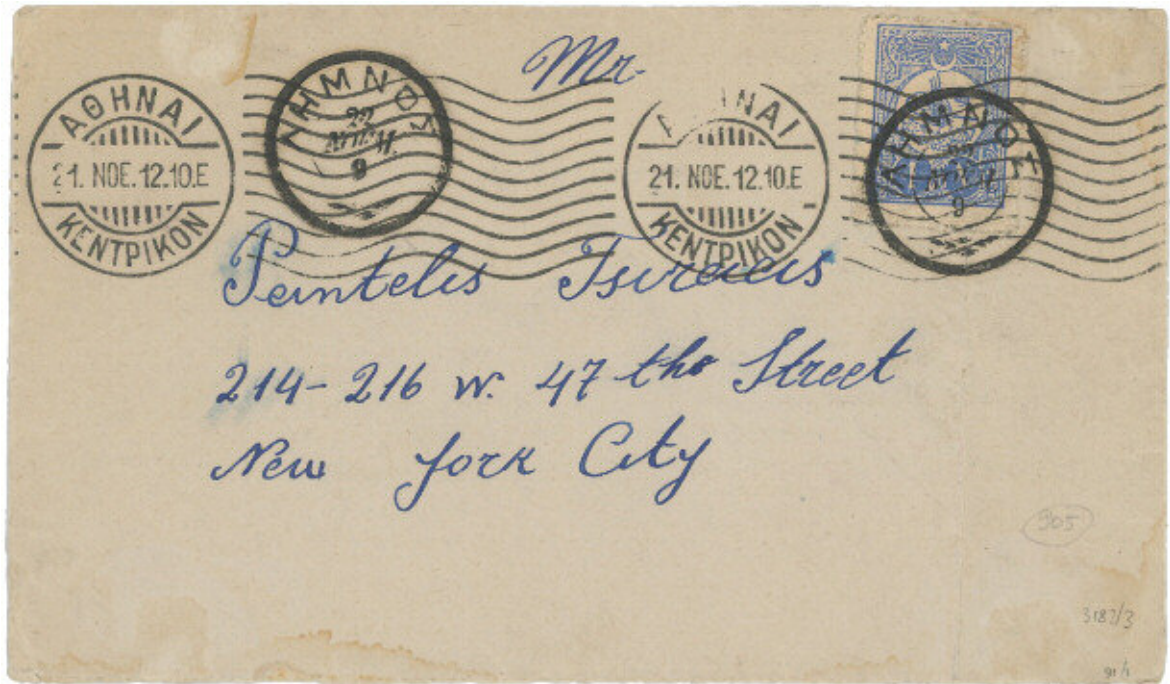 Mr.
ΑΘΗΝΑΙ
21. ΝΟΕ. 12.10.Ε
ΚΕΝΤΡΙΚΟΝ
ΛΗΜΝΟΣ
22
9
ΝΑΙ
21. ΝΟΕ. 12.10.Ε
ΚΕΝΤΡΙΚΟΝ
ΛΗΜΝΟΣ
9
Pantelis
214-216 W. 47 the Street
New York City
905
3182/3
91/1